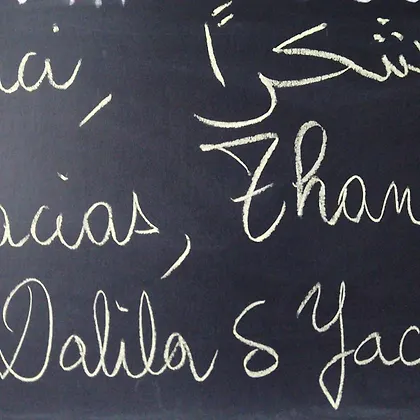 ci, شكرًا
acias, Than
Dalila & Yac